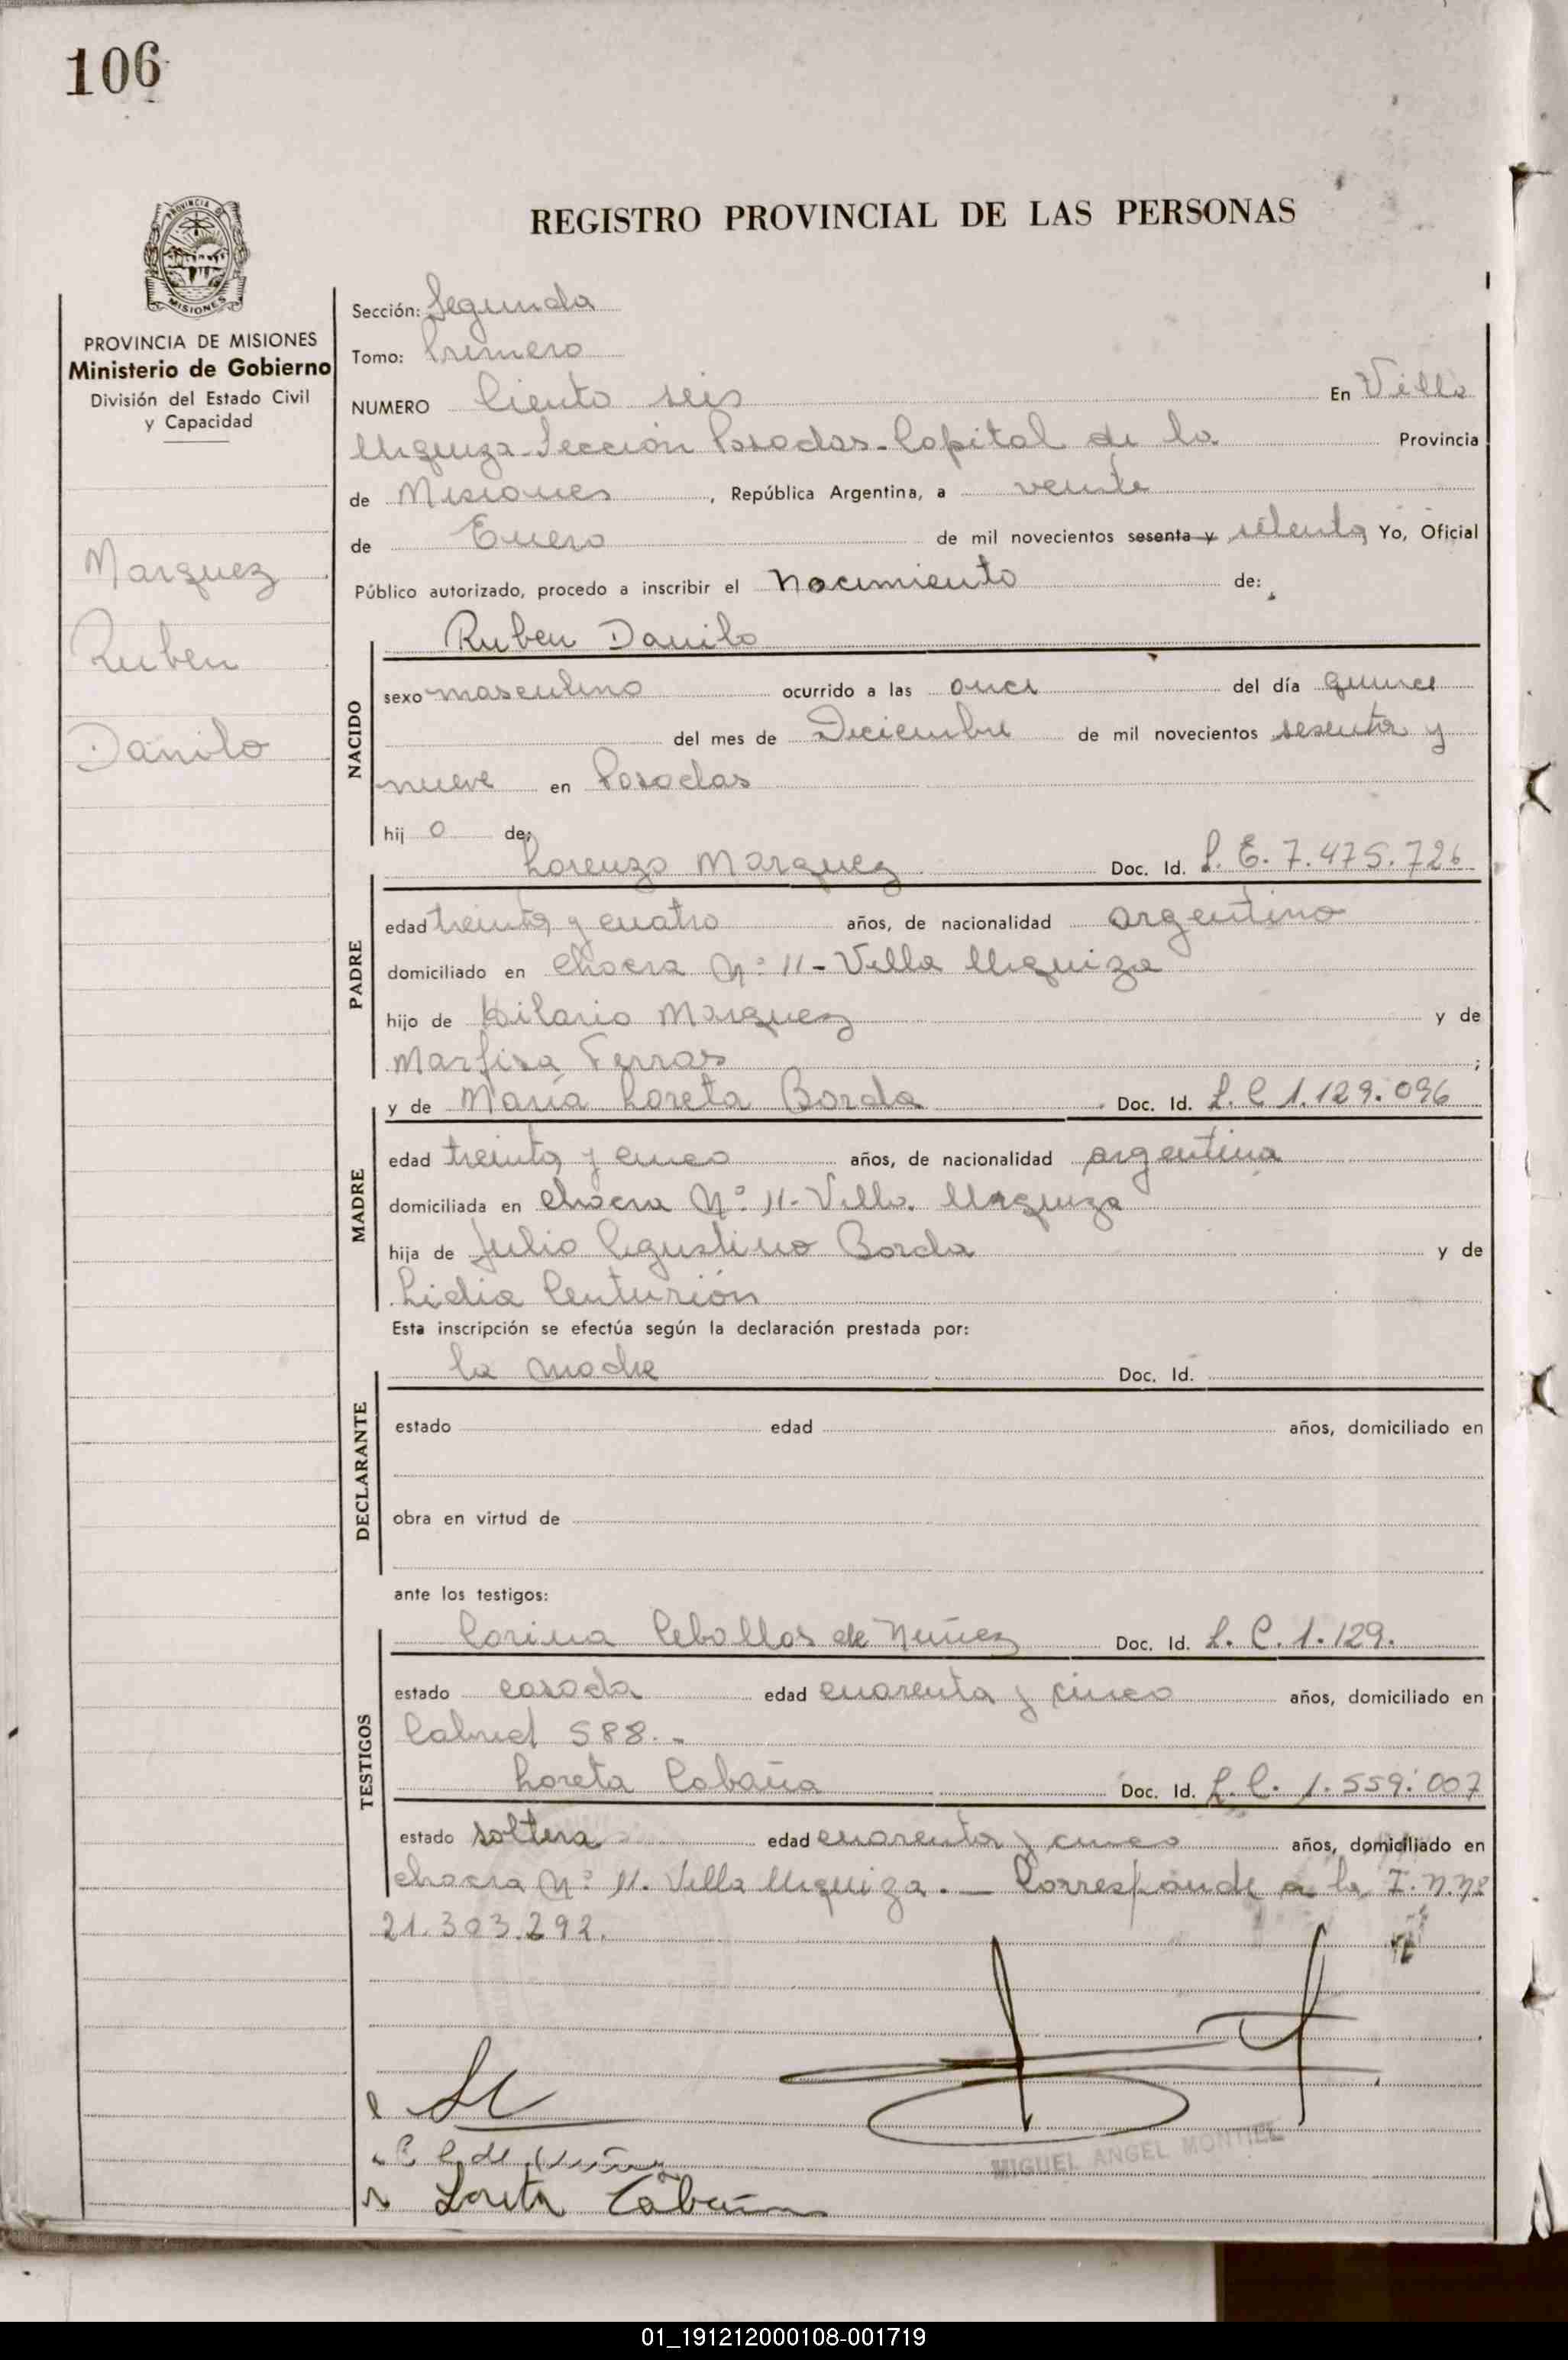 106
REGISTRO PROVINCIAL DE LAS PERSONAS
PROVINCIA DE MISIONES
PROVINCIA DE MISIONES
Ministerio de Gobierno
División del Estado Civil
y Capacidad
Marquez
Ruben
Danilo
Sección: Segunda
Tomo: Primero
NUMERO Ciento seis En Villa
Urquiza-Sección Posadas-Capital de la Provincia
de Misiones, República Argentina, a veinte
de Enero de mil novecientos sesenta y setenta, Yo, Oficial
Público autorizado, procedo a inscribir el Nacimiento de:
NACIDO
Ruben Danilo
sexo masculino ocurrido a las once del día quince
del mes de Diciembre de mil novecientos sesenta y
nueve en Posadas
hij o de:
PADRE
Lorenzo Marquez Doc. Id. L. E. 7.475.726
edad treinta y cuatro años, de nacionalidad argentino
domiciliado en chacra Nº 11- Villa Urquiza
hijo de Hilario Marquez y de
Marfisa Ferras;
MADRE
y de María Loreta Borda Doc. Id. L. C 1.129.096
edad treinta y cinco años, de nacionalidad argentina
domiciliada en chacra Nº 11- Villa Urquiza
hija de Julio Agustino Borda y de
Lidia Centurión
Esta inscripción se efectúa según la declaración prestada por:
DECLARANTE
la madre Doc. Id.
estado edad años, domiciliado en
obra en virtud de
ante los testigos:
TESTIGOS
Corina Ceballos de Nuñez Doc. Id. L. C. 1.129.
estado casada edad cuarenta y cinco años, domiciliado en
Cabred 588.-
Loreta Cabaña Doc. Id. L. C. 1.559.007
estado soltera edad cuarenta y cinco años, domiciliado en
chacra Nº 11. Villa Urquiza. — Corresponde a la I. N. Nº
21.303.292.
C de Nuñez
Loreta Cabaña
MIGUEL ANGEL MONTIEL
01_191212000108-001719